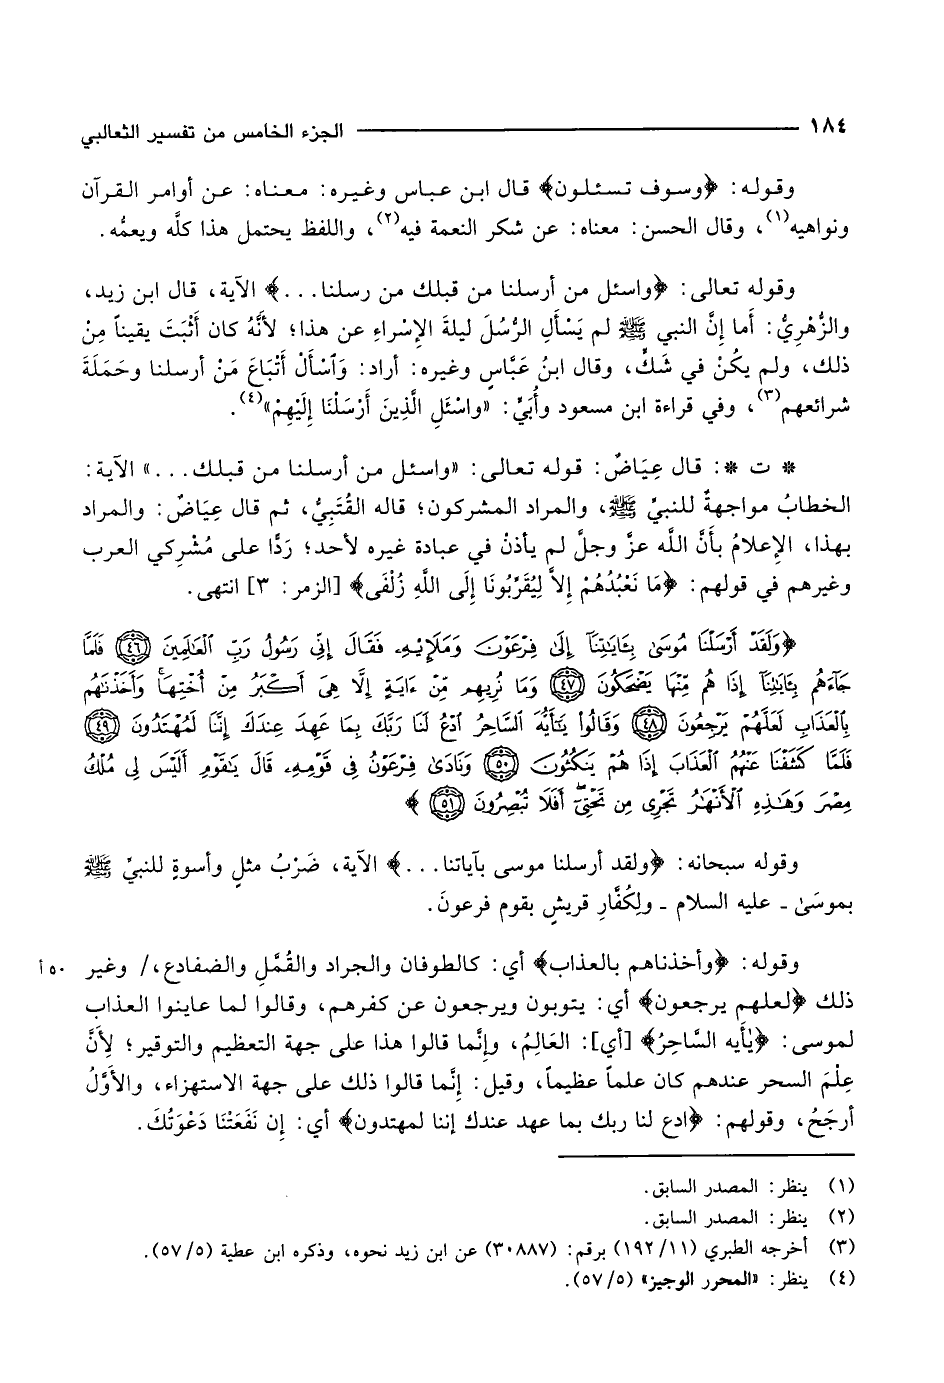 ١٨٤ ـــــــ الجزء الخامس من تفسير الثعالبي
وقوله: ﴿وسوف تسئلون﴾ قال ابن عباس وغيره: معناه: عن أوامر القرآن
ونواهيه(١)، وقال الحسن: معناه: عن شكر النعمة فيه(٢)، واللفظ يحتمل هذا كلَّه ويعمُّه.
وقوله تعالى: ﴿واسئل من أرسلنا من قبلك من رسلنا...﴾ الآية، قال ابن زيد،
والزُّهْرِيُّ: أَما إِنَّ النبي ﷺ لم يَسْأَلِ الرُّسُلَ ليلةَ الإِسْراءِ عن هذا؛ لأَنَّهُ كان أَثْبَتَ يقيناً مِنْ
ذلك، ولم يكُنْ في شَكٍّ، وقال ابنُ عَبَّاسٍ وغيره: أراد: وَٱسْأَلْ أَتْبَاعَ مَنْ أرسلنا وحَمَلَةَ
شرائعهم(٣)، وفي قراءة ابن مسعود وأُبَيِّ: «واسْئَلِ الَّذِينَ أَرْسَلْنَا إِلَيْهِمْ»(٤).
* ت *: قال عِيَاضٌ: قوله تعالى: «واسئل من أرسلنا من قبلك...» الآية:
الخطابُ مواجهةٌ للنبيِّ ﷺ، والمراد المشركون؛ قاله القُتَبِيُّ، ثم قال عِيَاضٌ: والمراد
بهذا، الإِعلامُ بأَنَّ اللَّه عزَّ وجلَّ لم يأذنْ في عبادة غيره لأحد؛ رَدًّا على مُشْرِكي العرب
وغيرهم في قولهم: ﴿مَا نَعْبُدُهُمْ إِلاَّ لِيُقَرِّبُونَا إِلَى اللَّهِ زُلْفَى﴾ [الزمر: ٣] انتهى.
﴿وَلَقَدْ أَرْسَلْنَا مُوسَىٰ بِـَٔايَـٰتِنَآ إِلَىٰ فِرْعَوْنَ وَمَلَإِيْهِۦ فَقَالَ إِنِّى رَسُولُ رَبِّ ٱلْعَـٰلَمِينَ ﴿٤٦﴾ فَلَمَّا
جَآءَهُم بِـَٔايَـٰتِنَآ إِذَا هُم مِّنْهَا يَضْحَكُونَ ﴿٤٧﴾ وَمَا نُرِيهِم مِّنْ ءَايَةٍ إِلَّا هِىَ أَكْبَرُ مِنْ أُخْتِهَا ۖ وَأَخَذْنَـٰهُم
بِٱلْعَذَابِ لَعَلَّهُمْ يَرْجِعُونَ ﴿٤٨﴾ وَقَالُوا۟ يَـٰٓأَيُّهَ ٱلسَّاحِرُ ٱدْعُ لَنَا رَبَّكَ بِمَا عَهِدَ عِندَكَ إِنَّنَا لَمُهْتَدُونَ ﴿٤٩﴾
فَلَمَّا كَشَفْنَا عَنْهُمُ ٱلْعَذَابَ إِذَا هُمْ يَنكُثُونَ ﴿٥٠﴾ وَنَادَىٰ فِرْعَوْنُ فِى قَوْمِهِۦ قَالَ يَـٰقَوْمِ أَلَيْسَ لِى مُلْكُ
مِصْرَ وَهَـٰذِهِ ٱلْأَنْهَـٰرُ تَجْرِى مِن تَحْتِىٓ ۖ أَفَلَا تُبْصِرُونَ ﴿٥١﴾ ﴾
وقوله سبحانه: ﴿ولقد أرسلنا موسى بآياتنا...﴾ الآية، ضَرْبُ مثلٍ وأسوةٍ للنبيِّ ﷺ
بموسَىٰ ـ عليه السلام ـ ولِكُفَّارِ قريشٍ بقوم فرعونَ.
وقوله: ﴿وأخذناهم بالعذاب﴾ أي: كالطوفان والجراد والقُمَّلِ والضفادع،/ وغير ٥٠ أ
ذلك ﴿لعلهم يرجعون﴾ أي: يتوبون ويرجعون عن كفرهم، وقالوا لما عاينوا العذاب
لموسى: ﴿يٰأَيه السَّاحِرُ﴾ [أي]: العَالِمُ، وإِنَّما قالوا هذا على جهة التعظيم والتوقير؛ لِأَنَّ
عِلْمَ السحر عندهم كان علماً عظيماً، وقيل: إِنَّما قالوا ذلك على جهة الاستهزاء، والأَوَّلُ
أرجَحُ، وقولهم: ﴿ادع لنا ربك بما عهد عندك إننا لمهتدون﴾ أي: إِن نَفَعَتْنَا دَعْوَتُكَ.
(١) ينظر: المصدر السابق.
(٢) ينظر: المصدر السابق.
(٣) أخرجه الطبري (١٩٢/١١) برقم: (٣٠٨٨٧) عن ابن زيد نحوه، وذكره ابن عطية (٥٧/٥).
(٤) ينظر: «المحرر الوجيز» (٥٧/٥).